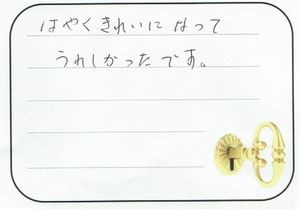 はやくきれいになって
うれしかったです。